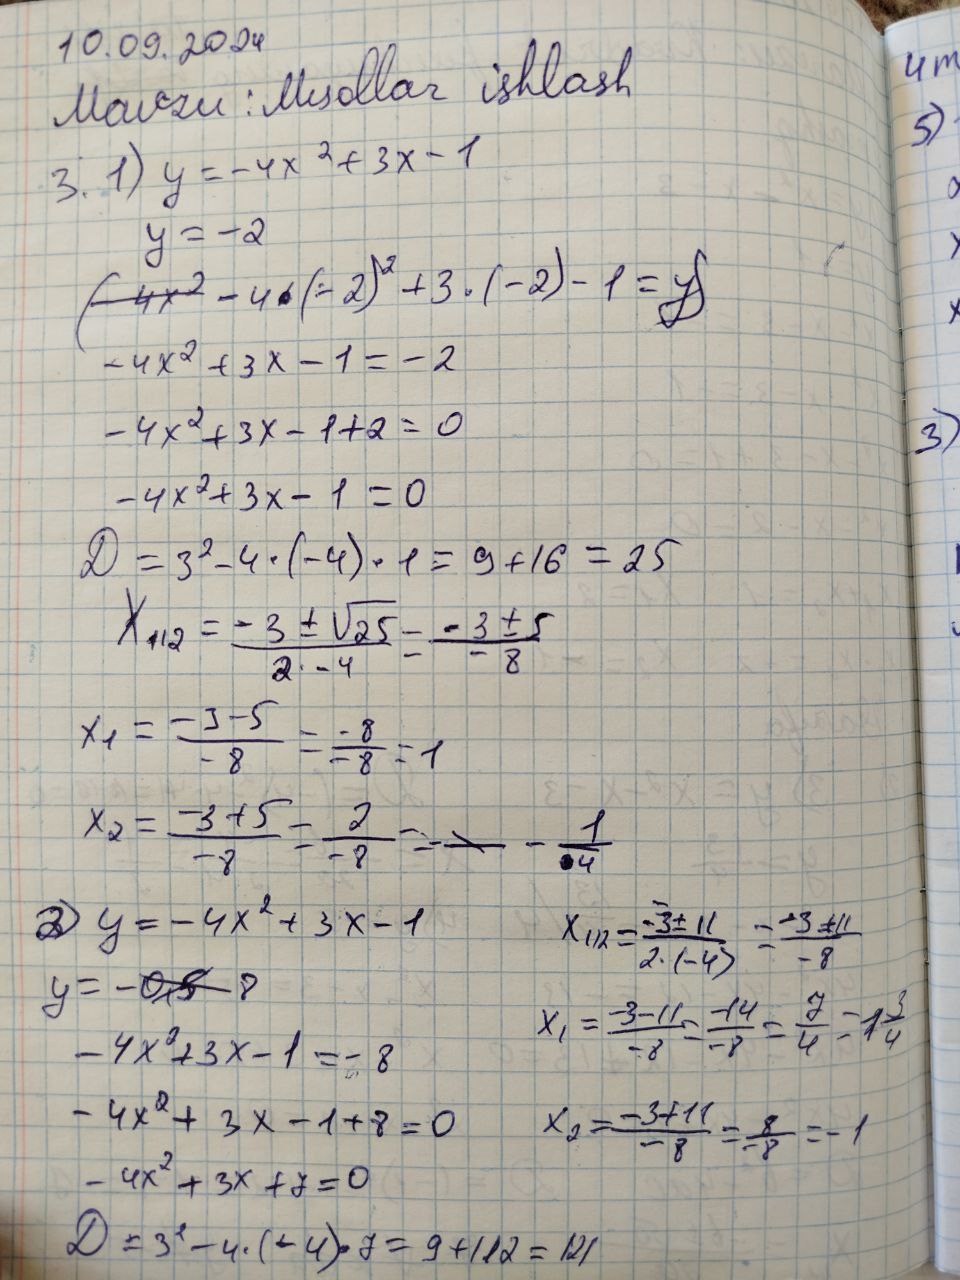 10.09.2024
Mavzu: Misollar ishlash
3. 1) y = -4x² + 3x - 1
y = -2
(-4x² - 4·(-2)² + 3·(-2) - 1 = y)
-4x² + 3x - 1 = -2
-4x² + 3x - 1 + 2 = 0
-4x² + 3x - 1 = 0
D = 3² - 4·(-4)·1 = 9 + 16 = 25
X₁,₂ = (-3 ± √25)/(2·-4) = (-3 ± 5)/(-8)
x₁ = (-3-5)/(-8) = (-8)/(-8) = 1
x₂ = (-3+5)/(-8) = 2/(-8) = - 1/4
2) y = -4x² + 3x - 1
y = -0,5 -8
-4x² + 3x - 1 = -8
-4x² + 3x - 1 + 8 = 0
-4x² + 3x + 7 = 0
D = 3² - 4·(-4)·7 = 9 + 112 = 121
X₁,₂ = (-3 ± 11)/(2·(-4)) = (-3 ± 11)/(-8)
x₁ = (-3-11)/(-8) = (-14)/(-8) = 7/4 = 1 3/4
x₂ = (-3+11)/(-8) = 8/(-8) = -1
4 m
5)
x
x
3)